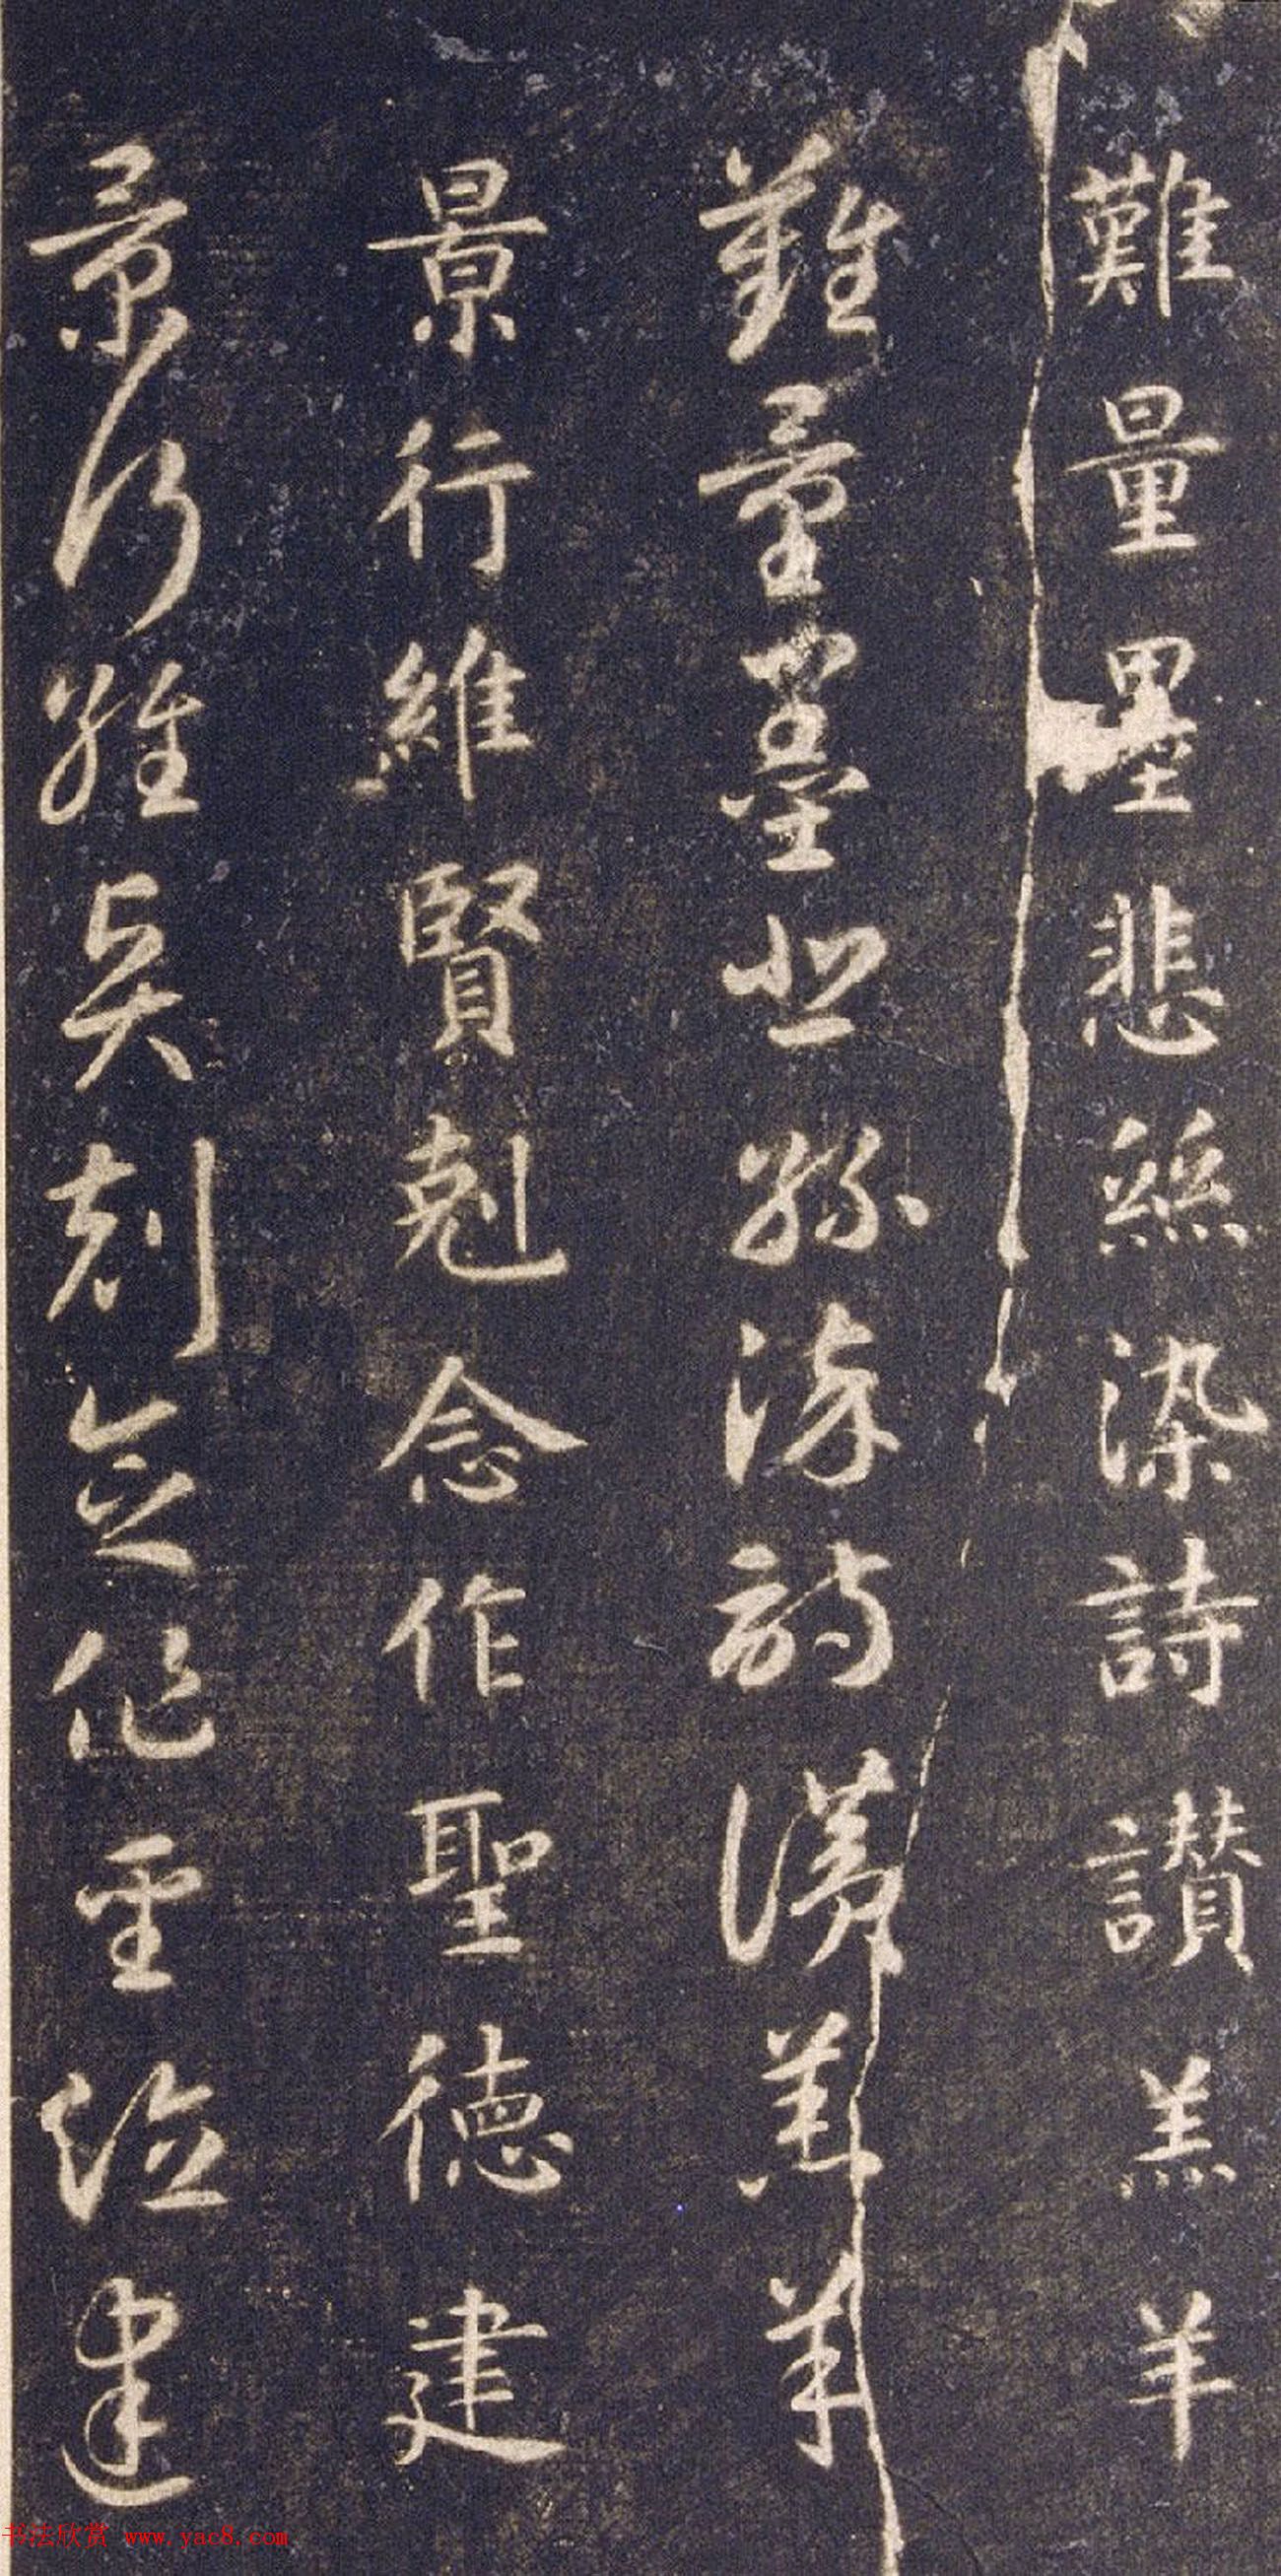 難量墨悲絲染詩讚羔羊
難量墨悲絲染詩讚羔羊
景行維賢剋念作聖德建
景行維賢剋念作聖德建
书法欣赏 www.yac8.com